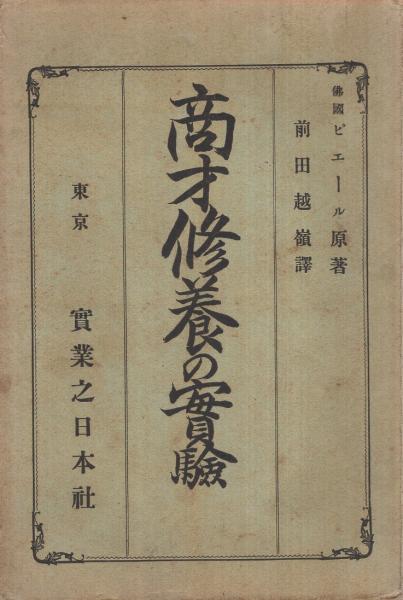 佛國ピエール原著
前田越嶺譯
商才修養の實驗
東京 實業之日本社